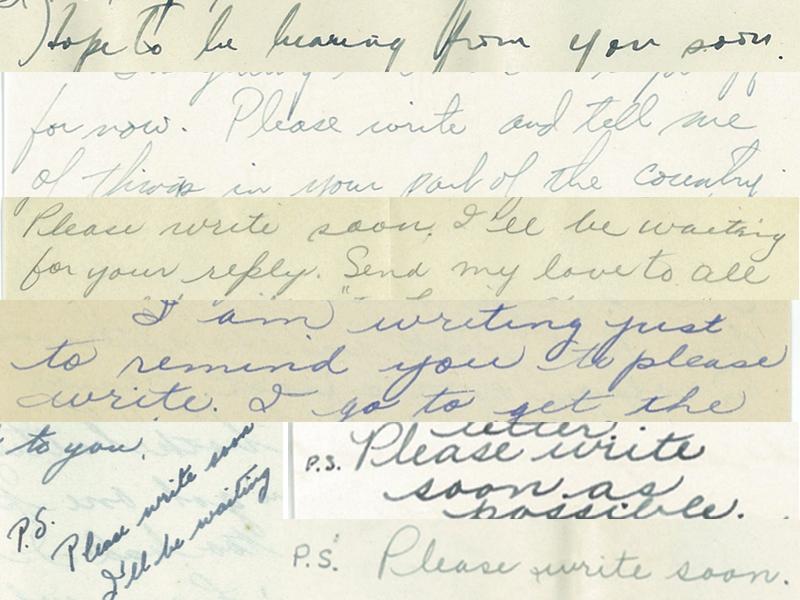 Hope to be hearing from you soon.
for now. Please write and tell me
of things in your part of the country.
Please write soon. I'll be waiting
for your reply. Send my love to all
I am writing just
to remind you to please
write. I go to get the
to you.
P.S.
Please write soon
I'll be waiting
letter.
P.S. Please write
soon as
possible.
P.S. Please write soon.